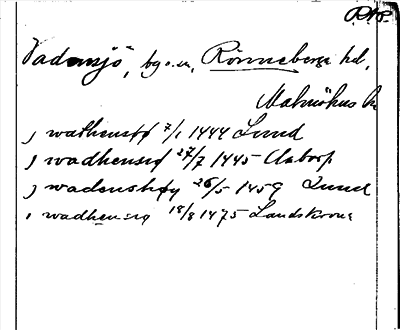 Vadensjö, by o. sn, Rönnebergs hd,
Malmöhus
, wathensø 7/1 1444 Lund
, wadhensiø 27/7 1445 Aaborg
, wadenshøy 26/5 1459 Lund
, wadhensiø 18/8 1475 Landskrona